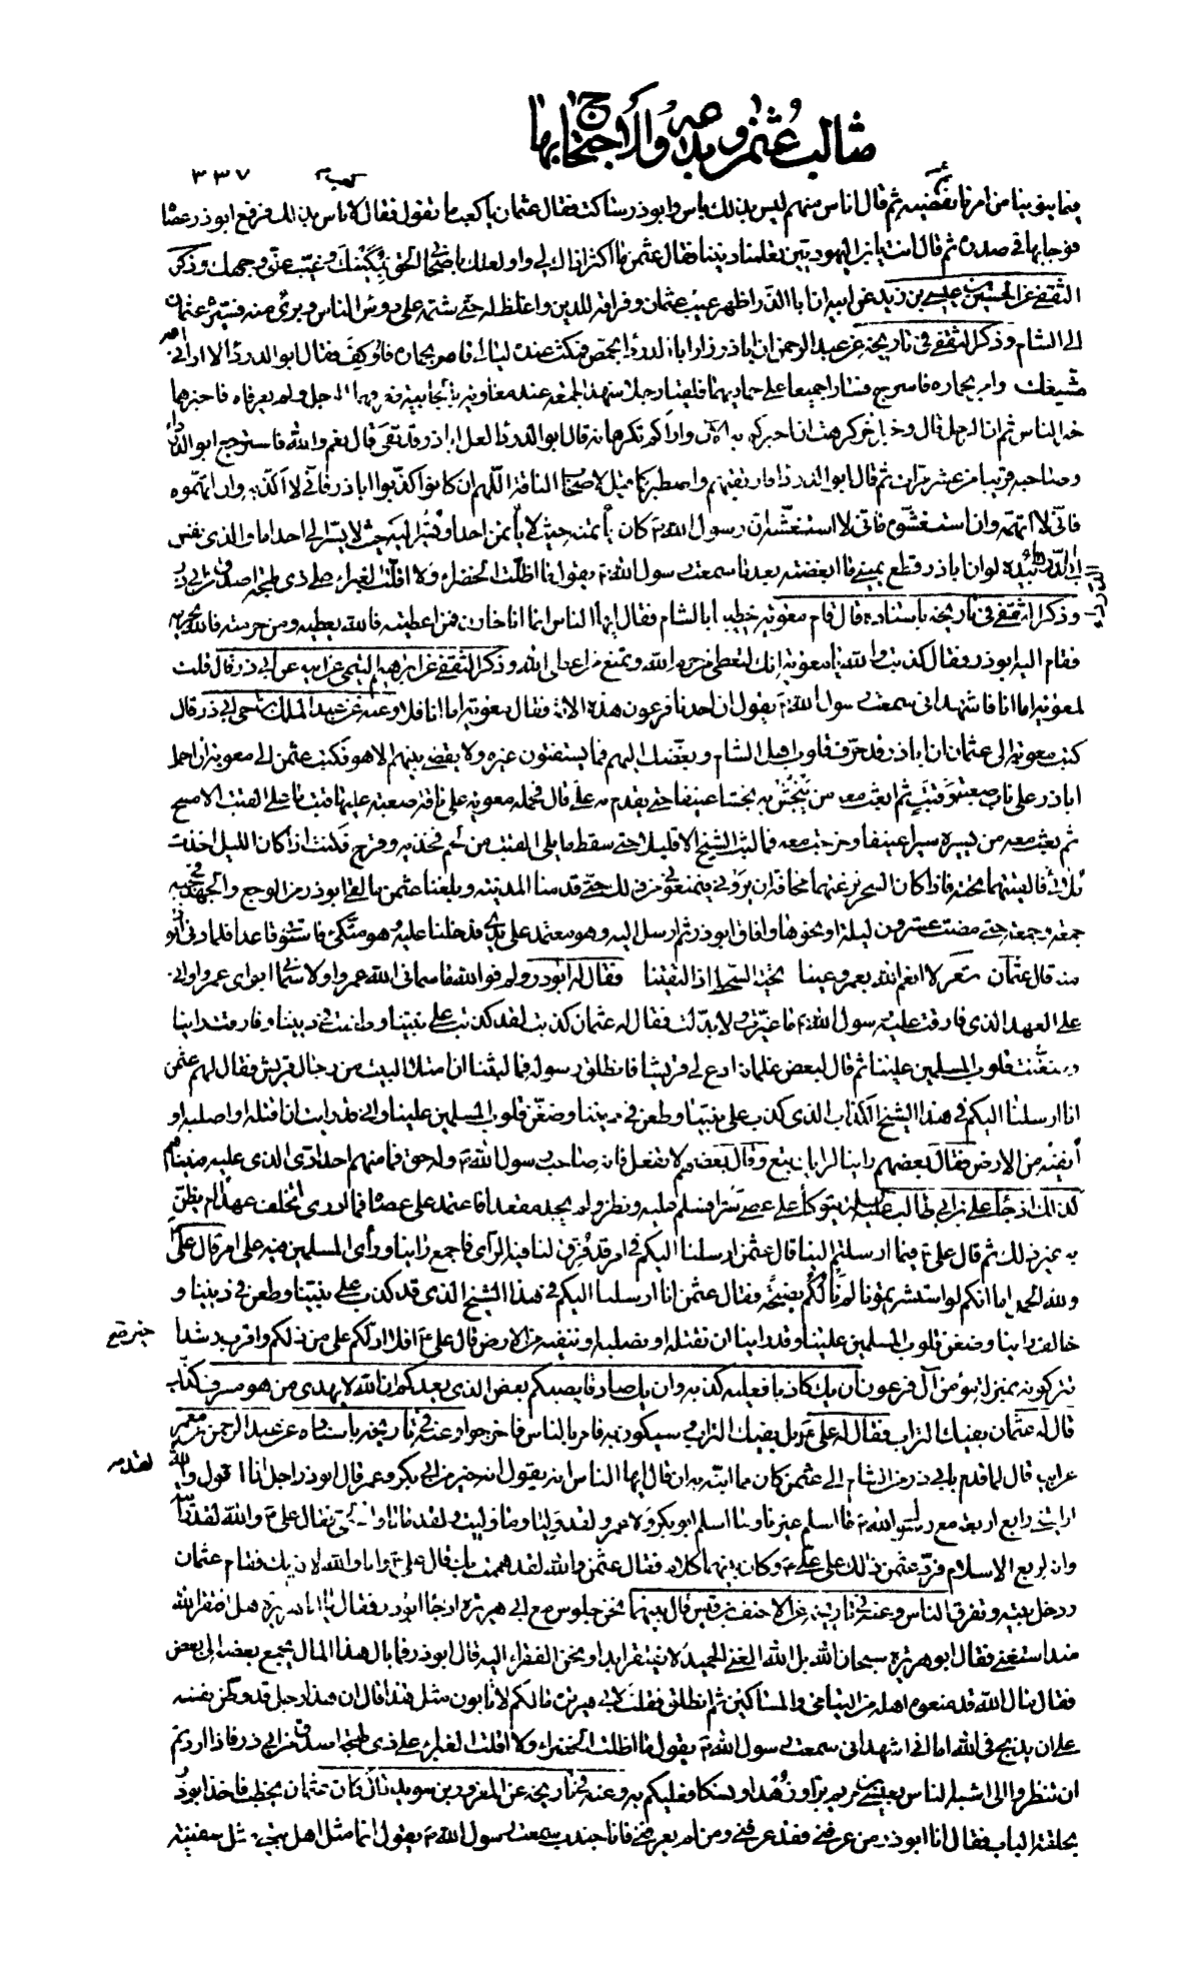 مثالب عثمن وبدعه والاحتجاج بها
٣٣٧
فيما ينوبنا من امر فاذا نقضيه ثم قال اناس منهم ليس بذلك باس وابوذر ساكت فقال عثمان يا كعب ما تقول فقال لا باس بذلك فرفع ابوذر عصا
فوجا بها في صدره ثم قال انت يا بن اليهوديين تعلمنا ديننا فقال عثمن ما اكثر اذاك لي واولعك باصحابي الحق بمكينك وغيب عني وجهك وذكر
الثقفي عن الحسين بن عيسى بن زيد عن ابيه ان ابا الذر اظهر عيب عثمان وفراقه للدين واغلظ له حتى شتمه على رؤس الناس وبرئ منه فسيره عثمان
الى الشام وذكر الثقفي في تاريخه عن عبد الرحمن ان اباذر زار ابا الدرداء بحمص فمكث عنده ليالي فامر بحماره فاوكف فقال ابوالدرداء لا اراني الله
مشيعك وامر بحماره فاسرج فسارا جميعا على حماريهما فلقيا رجلا شهد الجمعة عند معاوية بالجابية فعرفهما الرجل ولم يعرفاه فاخبرهما
خبر الناس ثم ان الرجل قال وخبر اخر كرهت ان اخبركم به الان واراكم تكرهانه قال ابوالدرداء لعل اباذر قد نفي قال نعم والله فاسترجع ابو الدرداء
وصاحبه قريبا من عشر مرات ثم قال ابو الدرداء فارتقبهم واصطبر كما قيل لاصحاب الناقة اللهم ان كانوا كذبوا اباذر فاني لا اكذبه وان اتهموه
فاني لا اتهمه وان استغشوه فاني لا استغشه ان رسول الله ص كان يأتمنه حيث لا يأتمن احدا ويسر اليه حيث لا يسر الى احد اما والذي نفس
ابي الدرداء بيده لو ان اباذر قطع يميني ما ابغضته بعد ما سمعت رسول الله ص يقول ما اظلت الخضراء ولا اقلت الغبراء على ذي لهجة اصدق من ابي ذر
وذكر الثقفي في تاريخه باسناده قال قام معوية خطيبا بالشام فقال ايها الناس انما انا خازن فمن اعطيته فالله يعطيه ومن حرمته فالله يحرمه
فقام اليه ابوذر وفقال كذبت والله يا معوية انك لتعطي من حرم الله وتمنع من اعطى الله وذكر الثقفي عن ابراهيم التيمي عن ابيه عن ابي ذر قال قلت
لمعوية اما انا فاشهد اني سمعت رسول الله ص يقول ان احدنا فرعون هذه الامة فقال معوية اما انا فلا وعنه عن عبد الملك بن اخي ابي ذر قال
كتب معوية الى عثمان ان اباذر قد حرف قلوب اهل الشام وبغضك اليهم فما يستفتون غيره ولا يقضي بينهم الا هو فكتب عثمن الى معوية ان احمل
اباذر على ناب صعبة وقتب ثم ابعث معه من ينجش به نجشا عنيفا حتى يقدم به علي قال فحمله معوية على ناقة صعبة عليها قتب ما على القتب الا مسح
ثم بعث معه من يسيره سيرا عنيفا وخرجت معه فما لبث الشيخ الا قليلا حتى سقط ما يلي القتب من لحم فخذيه وقرح فكنت اذا كان الليل اخذت
فالقيتهما تحته فاذا كان السحر نزعتهما مخافة ان يروني فيمنعوني من ذلك حتى قدمنا المدينة وبلغنا عثمن ما لقي ابوذر من الوجع والجهد فحجبه
جمعة وجمعة حتى مضت عشرون ليلة او نحوها وافاق ابوذر ثم ارسل اليه وهو معتمد على يدي فدخلنا عليه وهو متكئ فاستوى قاعدا فلما دنى ابوذر
منه قال عثمان شعر لا انعم الله بعمرو عينا تحية السخط اذا التقينا فقال له ابوذر ولم فوالله ما سماني الله عمروا ولا سماني ابواي عمروا واني
على العهد الذي فارقت عليه رسول الله ص ما غيرت ولا بدلت فقال له عثمان كذبت لقد كذبت على نبينا وطعنت في ديننا وفارقت راينا
وضغنت قلوب المسلمين علينا ثم قال لبعض غلمانه ادع لي قريشا فانطلق رسوله فما لبثنا ان امتلا البيت من رجال قريش فقال لهم عثمن
انا ارسلنا اليكم في هذا الشيخ الكذاب الذي كذب على نبينا وطعن في ديننا وضغن قلوب المسلمين علينا واني قد رايت ان اقتله او اصلبه او
انفيه من الارض فقال بعضهم راينا لرايك تبع وقال بعضهم لا تفعل فانه صاحب رسول الله ص وله حق فما منهم احد ادى الذي عليه فبينما هم
كذلك اذ جاء علي بن ابي طالب عليه السلم يتوكأ على عصى سترا فسلم عليه ونظر ولم يجد مقعدا فاعتمد على عصاه فما ادري اتخلف عهد ام يظن
به غير ذلك ثم قال علي ع فيما ارسلتم الينا قال عثمن ارسلنا اليكم في امر قد فرق لنا فيه الرأى فاجمع راينا ورأى المسلمين فيه على امر قال علي
ولله الحمد اما انكم لو استشرتمونا لم نألكم نصيحة فقال عثمن انا ارسلنا اليكم في هذا الشيخ الذي قد كذب على نبينا وطعن في ديننا و
خالف راينا وضغن قلوب المسلمين علينا وقد راينا ان نقتله او نصلبه او ننفيه من الارض قال علي ع افلا ادلكم على من ذلكم واقرب رشدا
تتركونه بمنزلة مؤمن آل فرعون ان يك كاذبا فعليه كذبه وان يك صادقا يصبكم بعض الذي يعدكم ان الله لا يهدي من هو مسرف كذاب
قال له عثمان بفيك التراب فقال له علي ع بل بفيك التراب سيكون به فامر بالناس فاخرجوا وعنه في تاريخه باسناده عن عبد الرحمن بن معمر
عن ابيه قال لما قدم بابي ذر من الشام الى عثمن كان مما ابنه به ان قال ايها الناس انه يقول انه خير من ابي بكر وعمر قال ابوذر اجل انا اقول والله لقد
رايتني رابع اربعة مع رسول الله ص ما اسلم غيرنا وما اسلم ابو بكر ولا عمر ولقد وليا وما وليت ولقد ماتا واني حي فقال علي ع والله لقد رايته
وانه لربع الاسلام فرد عثمن ذلك على علي ع وكان بينهما كلام فقال عثمن والله لقد هممت بك قال علي ع وانا والله لاهم بك فقام عثمان
ودخل بيته وتفرق الناس وعنه في تاريخه عن الاحنف بن قيس قال بينما نحن جلوس مع ابي هريرة اذ جاء ابوذر فقال يا ابا هريرة هل افتقر الله
منذ استغنى فقال ابو هريرة سبحان الله بل الله الغني الحميد لا يفتقر ابدا ونحن الفقراء اليه قال ابوذر فما بال هذا المال يجمع بعضه الى بعض
فقال مال الله قد منعوه اهله من اليتامى والمساكين ثم انطلق فقلت لابي هريرة ما لكم لا تابون مثل هذا قال ان هذا رجل قد وطن نفسه
على ان يذبح في الله اما اني اشهد اني سمعت رسول الله ص يقول ما اظلت الخضراء ولا اقلت الغبراء على ذي لهجة اصدق من ابي ذر فاذا اردتم
ان تنظروا الى اشبه الناس بعيسى بن مريم برا وزهدا ونسكا فعليكم به وعنه في تاريخه عن المعرور بن سويد قال كان عثمان يخطب فاخذ ابوذر
بحلقة الباب فقال انا ابوذر من عرفني فقد عرفني ومن لم يعرفني فانا جندب سمعت رسول الله ص يقول انما مثل اهل بيتي مثل سفينة